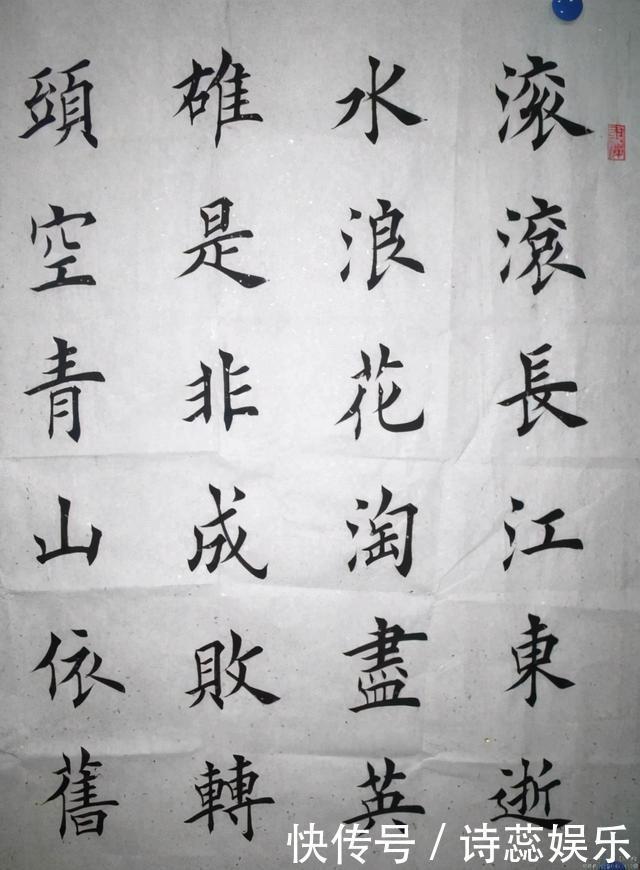 滚滾長江東逝
水浪花淘盡英
雄是非成敗轉
頭空青山依舊
快传号/诗蕊娱乐